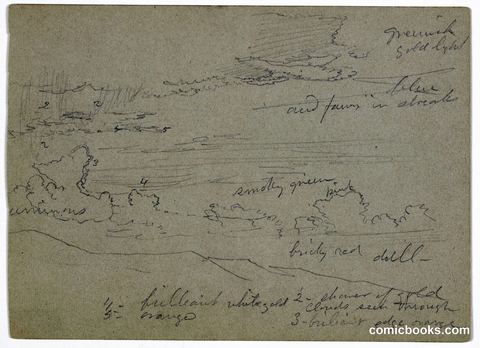 greenish
gold light
blue
and fawn in streaks
2
2
5
2
3
4
smoky green
pink
bricky red dull
4 = brilliant white gold
5 = orange
2 - shower of gold
clouds seen through
3 - brilliant edge
comicbooks.com